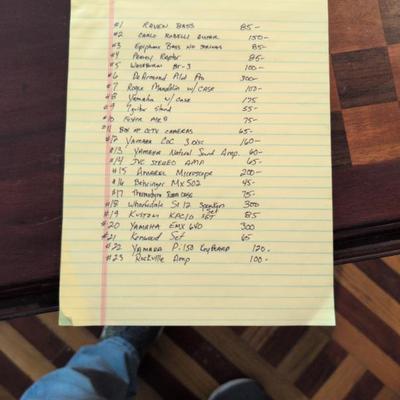 #1 RAVEN BASS 85-
#2 CARLO ROBELLI GUITAR 150-
#3 Epiphone BASS NO STRINGS 85-
#4 Peavey Raptor 85-
#5 WASHBURN BT-3 100-
#6 DeArmond Pilot Pro 300-
#7 Rogue Mandolin w/CASE 100-
#8 Yamaha w/CASE 175
#9 Guitar Stand 55-
#10 75-
#11 BOX OF OLD CAMERAS 65-
#12 YAMAHA CDC 3 Disc 160-
#13 YAMAHA Natural Sound Amp. 60-
#14 JVC STEREO AMP 65-
#15 Microscope 200-
#16 Behringer MX502 45-
#17 CASE 75-
#18 Wharfedale St 12 Speakers 300
#19 KUSTOM KPC10 SET 85
#20 YAMAHA EMX 640 300
#21 Kenwood Set 65
#22 YAMAHA P.150 KeyBOARD 120-
#23 Rockville Amp 100-